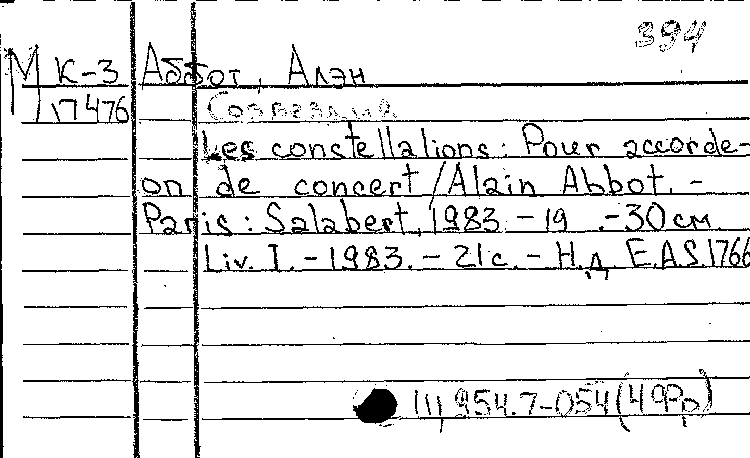 394
М К-3 Аббот, Алэн
17476 Созвездия
Les constellations: Pour accorde-
on de concert / Alain Abbot. -
Paris: Salabert, 1983 - 19 . - 30 см
Liv. I. - 1983. - 21 с. - Н.д. E.A.S. 1766
Щ 954.7-054(4Фр)